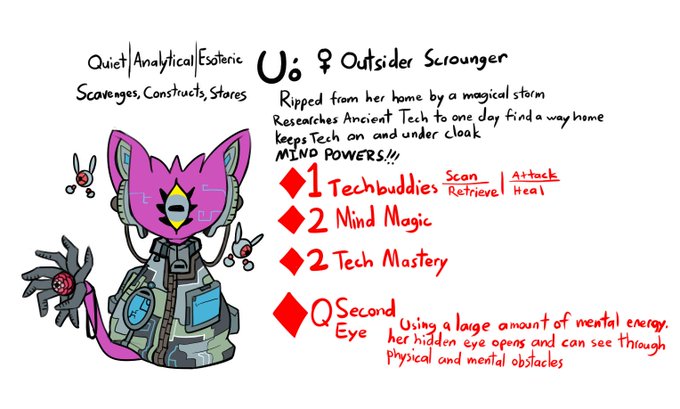 Quiet|Analytical|Esoteric
Scavenges, Constructs, Stares
Uó ♀ Outsider Scrounger
Ripped from her home by a magical storm
Researches Ancient Tech to one day find a way home
Keeps Tech on and under cloak
MIND POWERS!!!
♦1 Techbuddies Scan/Retrieve | Attack/Heal
♦2 Mind Magic
♦2 Tech Mastery
♦Q Second Eye
Using a large amount of mental energy.
her hidden eye opens and can see through
physical and mental obstacles